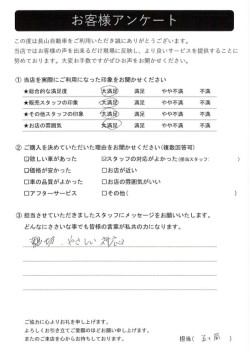 お客様アンケート
この度は長山自動車をご利用いただき誠にありがとうございます。
当店ではお客様の声を出来るだけ現場に反映し、より良いサービスを提供することに
努めております。大変お手数ですがぜひお声をお聞かせください。
① 当店を実際にご利用になった印象をお聞かせください
★総合的な満足度 大満足 満足 やや不満 不満
★販売スタッフの印象 大満足 満足 やや不満 不満
★その他スタッフの印象 大満足 満足 やや不満 不満
★お店の雰囲気 大満足 満足 やや不満 不満
② ご購入を決めていただいた理由をお聞かせください(複数回答可)
□欲しい車があった ☑スタッフの対応がよかった(担当スタッフ: )
□価格が安かった □お店が近い
□車の品質がよかった □お店の雰囲気がいい
□アフターサービス □その他( )
③ 担当させていただきましたスタッフにメッセージをお願いいたします。
どんなにささいな事でも皆様の言葉が私共の力になります。
親切、やさしい対応
ご協力に心よりお礼を申し上げます。
よろしくお引き立てご愛顧のほどお願い申し上げます。
またのご来店を心からお待ちしております。
担当( )